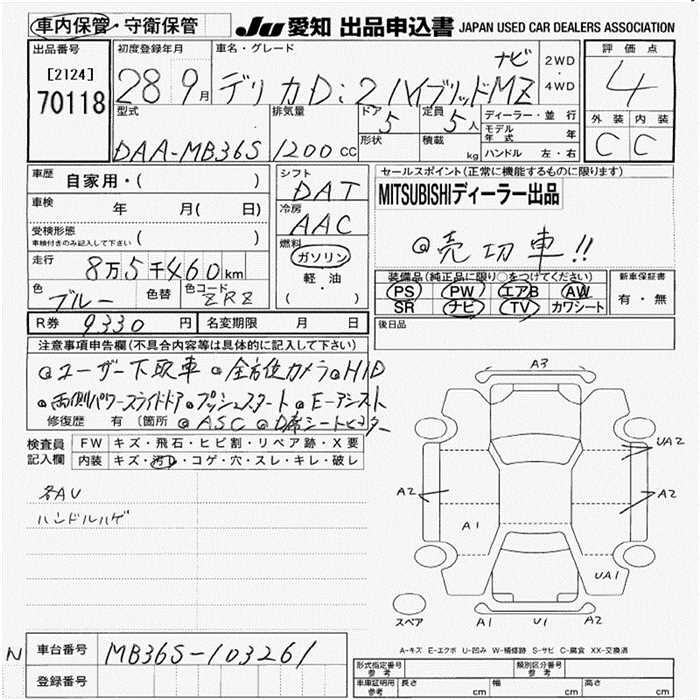 車内保管・守衛保管 JU 愛知 出品申込書 JAPAN USED CAR DEALERS ASSOCIATION
出品番号
[2124]
70118
初度登録年月
28 9月
車名・グレード
デリカD:2 ハイブリッドMZ
ナビ
2WD
・
4WD
評価点
4
外装 内装
C C
型式
DAA-MB36S
排気量
1200cc
ドア
5
形状
定員
5人
積載
kg
ディーラー・並行
モデル年式 年
ハンドル 左・右
車歴 自家用・( )
車検 年 月( 日)
受検形態
車検付きのみ記入して下さい ( )
走行 8万5千460km
色 ブルー 色替 色コード ZRZ
シフト
DAT
冷房
AAC
燃料
ガソリン
・
軽・油
( )
R券 9330円 名変期限 月 日
セールスポイント(正常に機能するものに限ります)
MITSUBISHIディーラー出品
◎売切車!!
装備品(純正品に限り○をつけてください)
PS PW エアB AW
SR ナビ TV カワシート
新車保証書
有・無
後日品
注意事項申告欄(不具合内容等は具体的に記入して下さい)
◎ユーザー下取車 ◎全方位カメラ ◎HID
◎両側パワースライドドア ◎プッシュスタート ◎E-アシスト
修復歴 有 (箇所 ◎ASC ◎D席シートヒーター
検査員記入欄
FW キズ・飛石・ヒビ割・リペア跡・X要
内装 キズ・汚レ・コゲ・穴・スレ・キレ・破レ
各AU
ハンドルハゲ
A3
UA2
A2
A2
A1
UA1
スペア
A1 U1 A2
A-キズ E-エクボ U-凹み W-補修跡 S-サビ C-腐食 XX-交換済
N 車台番号 MB36S-103261
登録番号
形式指定番号
参考
類別区分番号
参考
車庫証明用
参考
長さ cm 幅 cm 高さ cm